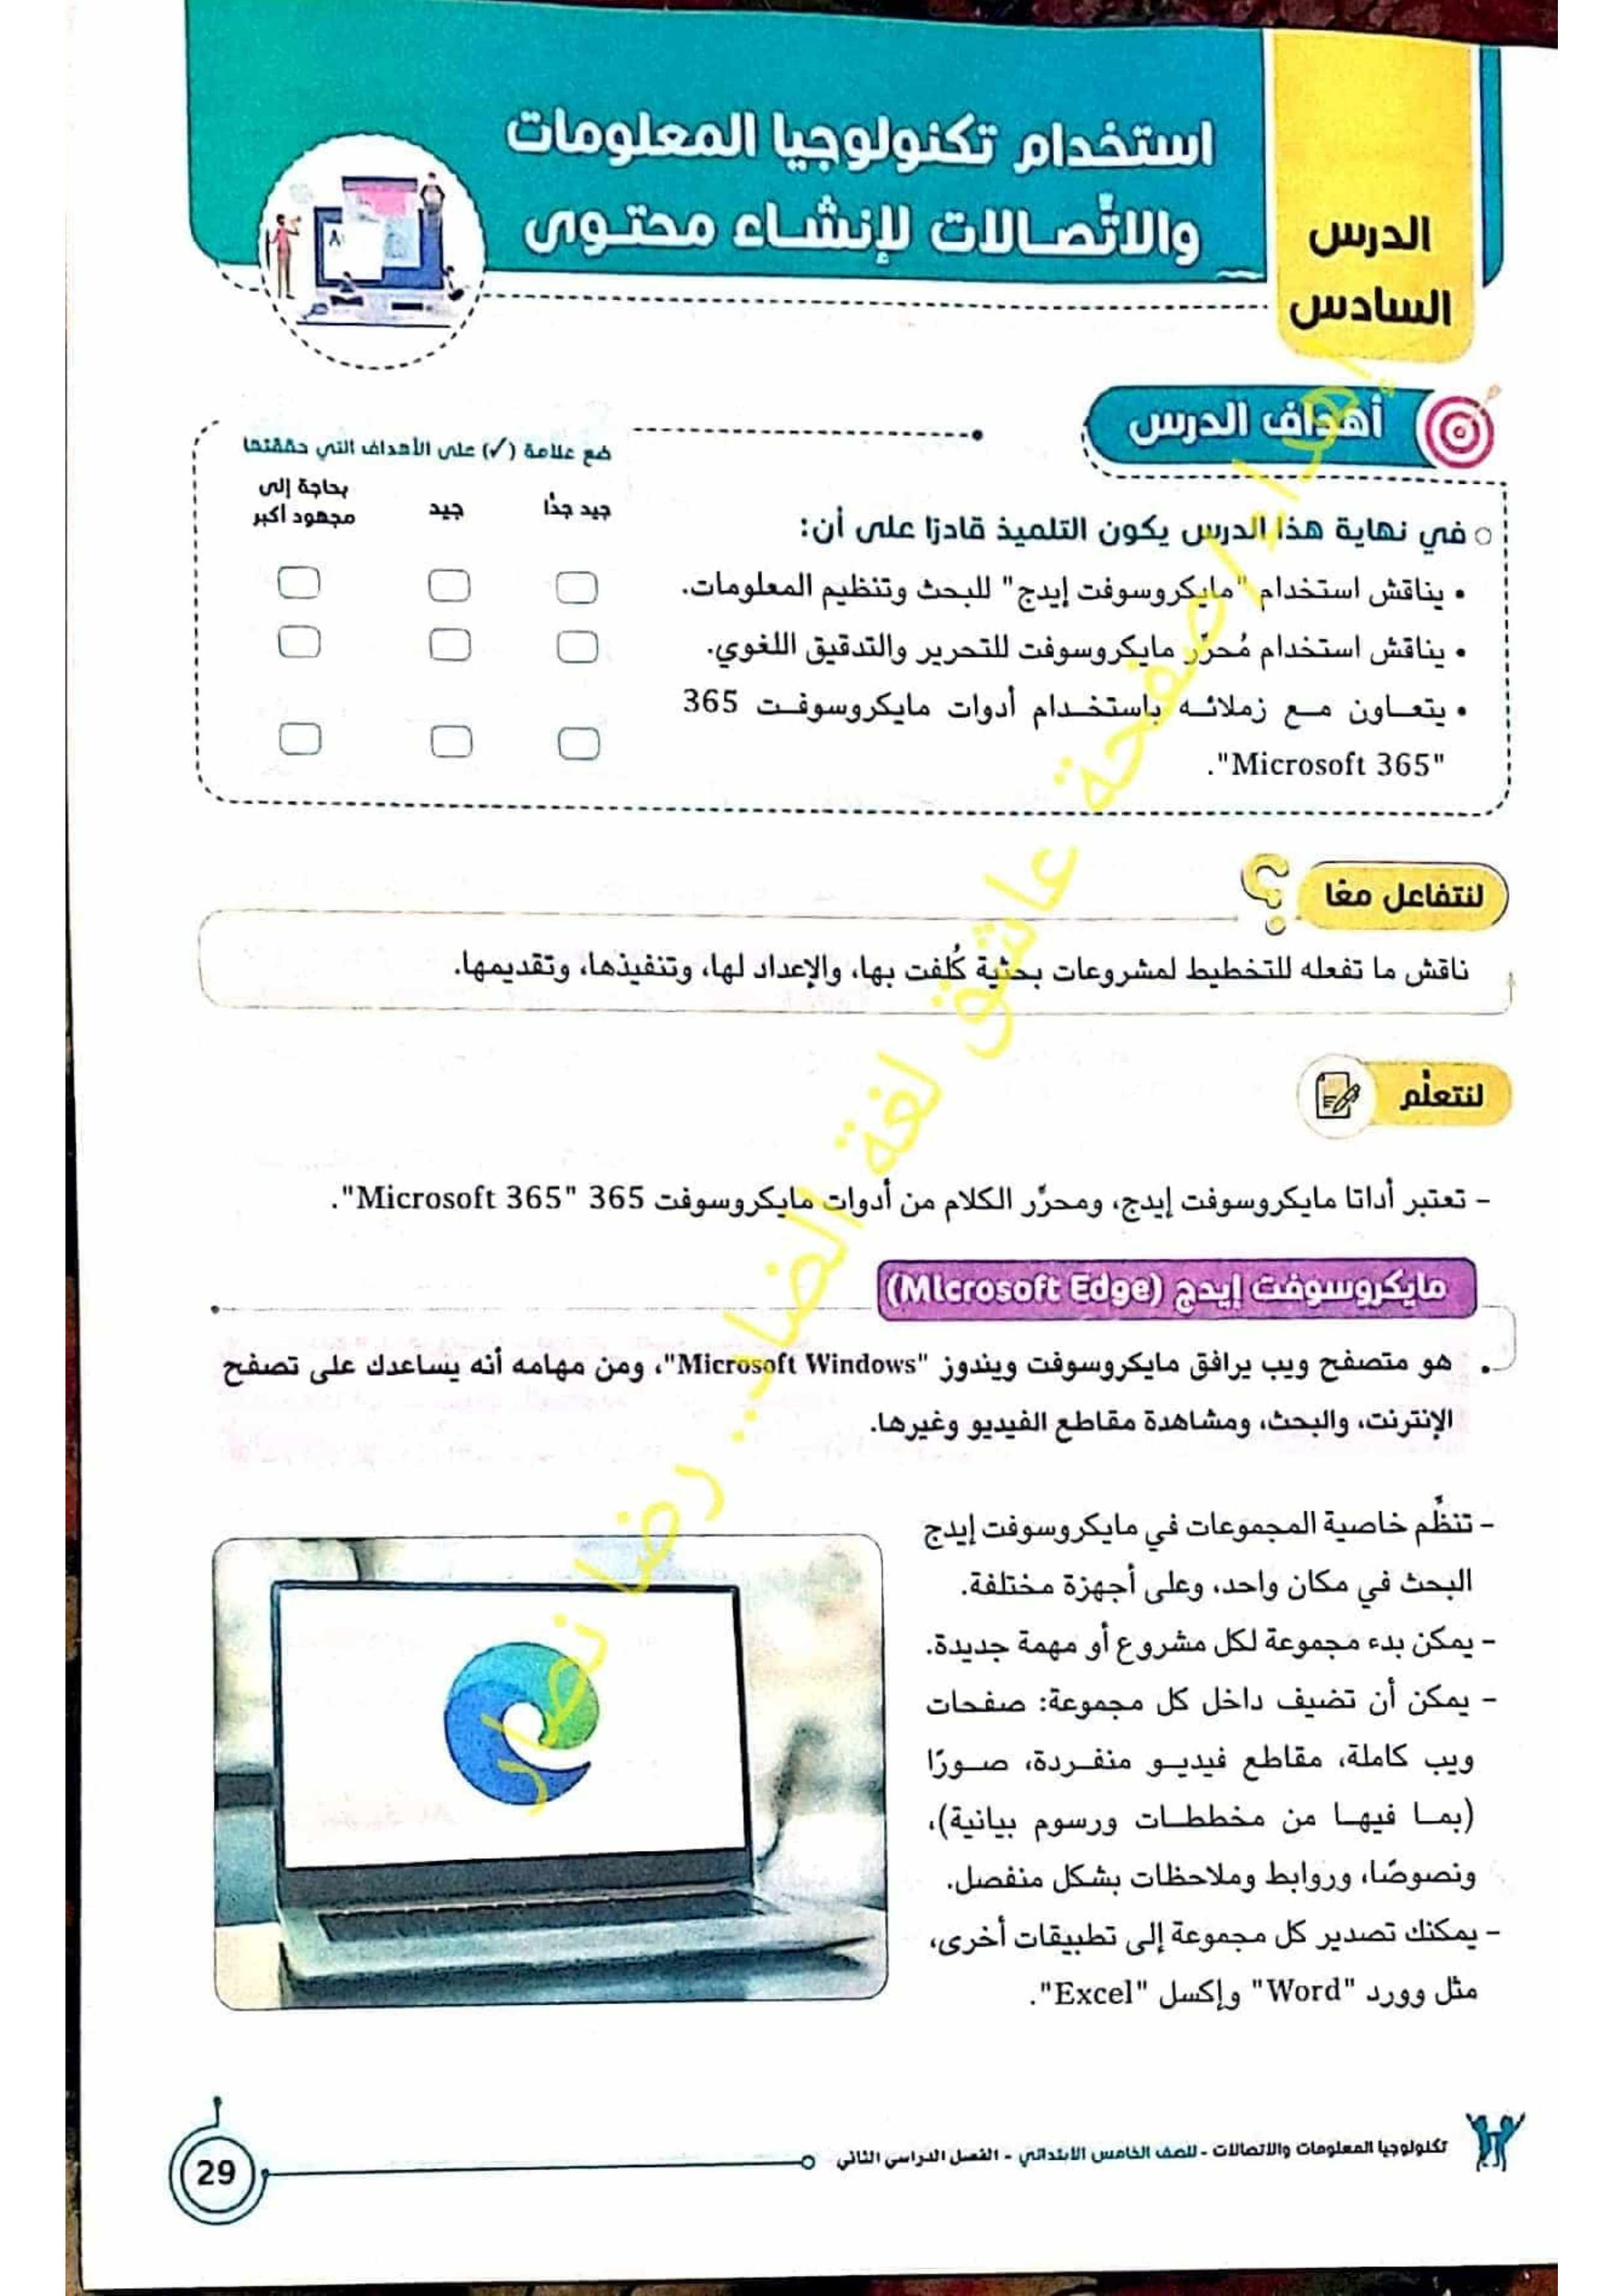 الدرس
السادس
استخدام تكنولوجيا المعلومات
والاتّصالات لإنشاء محتوى
أهداف الدرس
ضع علامة (✓) على الأهداف التي حققتها
جيد جدًا
جيد
بحاجة إلى
مجهود أكبر
في نهاية هذا الدرس يكون التلميذ قادرًا على أن:
• يناقش استخدام "مايكروسوفت إيدج" للبحث وتنظيم المعلومات.
• يناقش استخدام مُحرِّر مايكروسوفت للتحرير والتدقيق اللغوي.
• يتعاون مع زملائه باستخدام أدوات مايكروسوفت 365
"Microsoft 365".
لنتفاعل معًا
ناقش ما تفعله للتخطيط لمشروعات بحثية كُلفت بها، والإعداد لها، وتنفيذها، وتقديمها.
لنتعلَّم
- تعتبر أداتا مايكروسوفت إيدج، ومحرِّر الكلام من أدوات مايكروسوفت 365 "Microsoft 365".
مايكروسوفت إيدج (Microsoft Edge)
• هو متصفح ويب يرافق مايكروسوفت ويندوز "Microsoft Windows"، ومن مهامه أنه يساعدك على تصفح
الإنترنت، والبحث، ومشاهدة مقاطع الفيديو وغيرها.
- تنظِّم خاصية المجموعات في مايكروسوفت إيدج
البحث في مكان واحد، وعلى أجهزة مختلفة.
- يمكن بدء مجموعة لكل مشروع أو مهمة جديدة.
- يمكن أن تضيف داخل كل مجموعة: صفحات
ويب كاملة، مقاطع فيديو منفردة، صورًا
(بما فيها من مخططات ورسوم بيانية)،
ونصوصًا، وروابط وملاحظات بشكل منفصل.
- يمكنك تصدير كل مجموعة إلى تطبيقات أخرى،
مثل وورد "Word" وإكسل "Excel".
إهداء اصفحة عاشق لغة الضاد.. رضا نصار
تكنولوجيا المعلومات والاتصالات - للصف الخامس الابتدائي - الفصل الدراسي الثاني
29